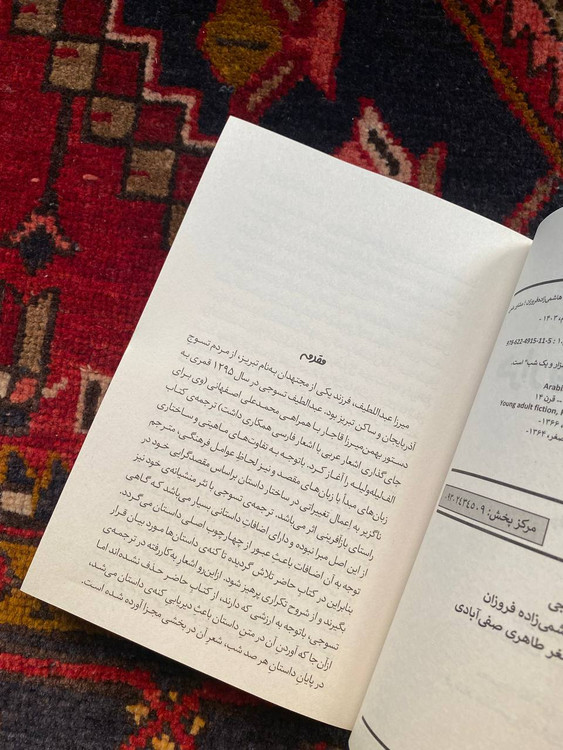 مقدمه
میرزا عبداللطیف، فرزند یکی از مجتهدان به‌نام تبریز، از مردم تسوج
آذربایجان و ساکن تبریز بود. عبدالطیف تسوجی در سال ۱۲۹۵ قمری به
دستور بهمن میرزا قاجار با همراهی محمدعلی اصفهانی (وی برای
جای گذاری اشعار عربی با اشعار فارسی همکاری داشت) ترجمه‌ی کتاب
الف‌لیله‌ولیله را آغاز کرد. باتوجه به تفاوت‌های ماهیتی و ساختاری
زبان‌های مبدأ با زبان‌های مقصد و نیز لحاظ عوامل فرهنگی، مترجم
ناگزیر به اعمال تغییراتی در ساختار داستان براساس مقصدگرایی خود در
راستای بازآفرینی اثر می‌باشد. ترجمه‌ی تسوجی با نثر منشیانه‌ی خود نیز
از این اصل مبرا نبوده و دارای اضافات داستانی بسیار می‌باشد که گاهی
توجه به آن اضافات باعث عبور از چهارچوب اصلی داستان می‌گردد.
بنابراین در کتاب حاضر تلاش گردیده تا کنه‌ی داستان‌ها مورد بیان قرار
بگیرند و از شروح تکراری پرهیز شود. ازاین‌رو اشعار به‌کاررفته در ترجمه‌ی
تسوجی، باتوجه به ارزشی که دارند، از کتاب حاضر حذف نشده‌اند اما
ازآن‌جا که آوردن آن در متن داستان باعث دیریابی کنه‌ی داستان می‌شد،
در پایان داستانِ هر صد شب، شعر آن در بخشی مجزا آورده شده است.
هاشمی‌زاده‌فروزان
۱۴۰۳ -
978-622-4915-11-5 :
هزار و یک شب" است.
Arabi
قرن ۱۴
Young adult fiction, P
۱۳۶۶-
صفر، ۱۳۶۴-
مرکز پخش: ۰۱۲۰۲۴۳۴۵۰۹
شمی‌زاده فروزان
غر طاهری صفی‌آبادی